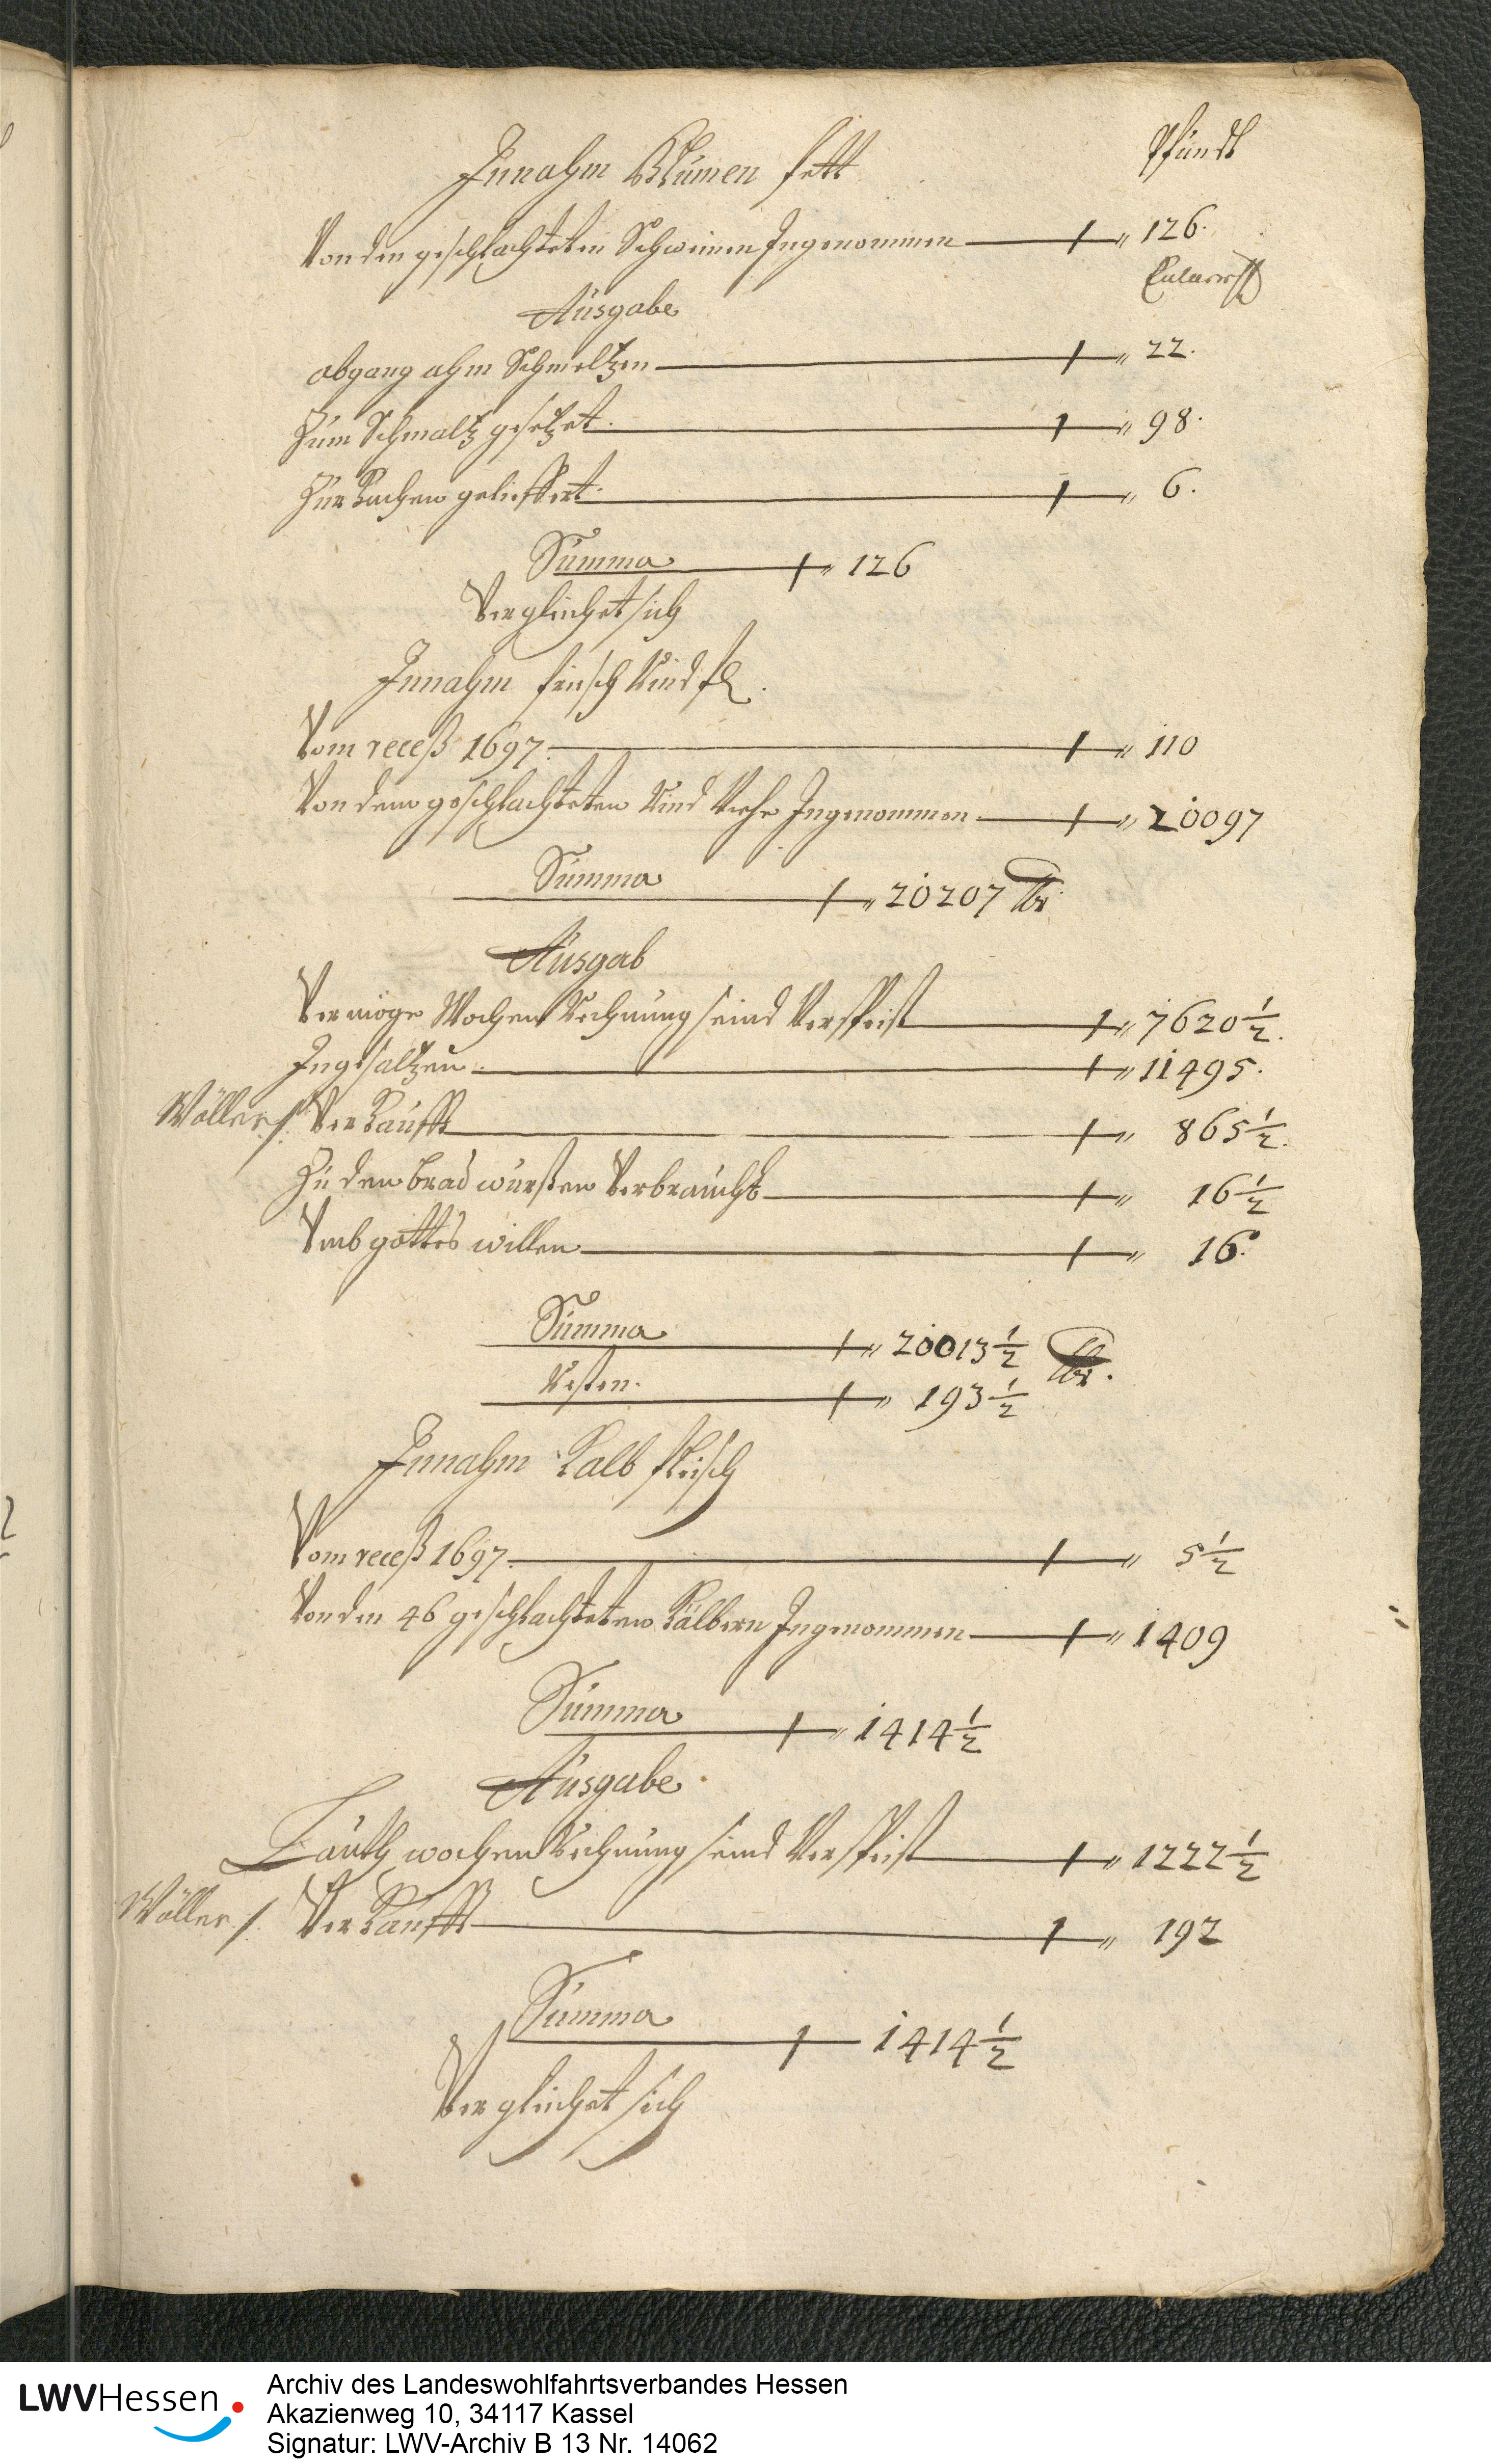 Innahm Blumen fett
Pfundt
Von den geschlachteten Schweinen Ingenommen 126.
Ausgabe
abgang ahm Schmeltzen 22.
Zum Schmaltz gesetzet. 98.
Zur Kuchen gelieffert. 6.
Summa 126
Vergleichet sich
Innahm frisch Rindfl.
Vom receß 1697. 110
Von dem geschlachteten Rind Viehe Ingenommen 20097
Summa 20207 lbr
Ausgab
Vermöge Wochen Rechnung seind Verspeist 7620 1/2.
Ingesaltzen. 11495.
Wöller /. Verkaufft 865 1/2.
Zu den bradwürsten Verbraucht 16 1/2
Umb gottes willen 16.
Summa 20013 1/2 lbr.
Resten. 193 1/2
Innahm Kalb fleisch
Vom receß 1697. 5 1/2
Von den 46 geschlachteten Kälbern Ingenommen 1409
Summa 1414 1/2
Ausgabe.
Lauth wochen Rechnung seind Verspeist 1222 1/2
Wöller /. Verkaufft 192
Summa 1414 1/2
Vergleichet sich
LWVHessen
Archiv des Landeswohlfahrtsverbandes Hessen
Akazienweg 10, 34117 Kassel
Signatur: LWV-Archiv B 13 Nr. 14062